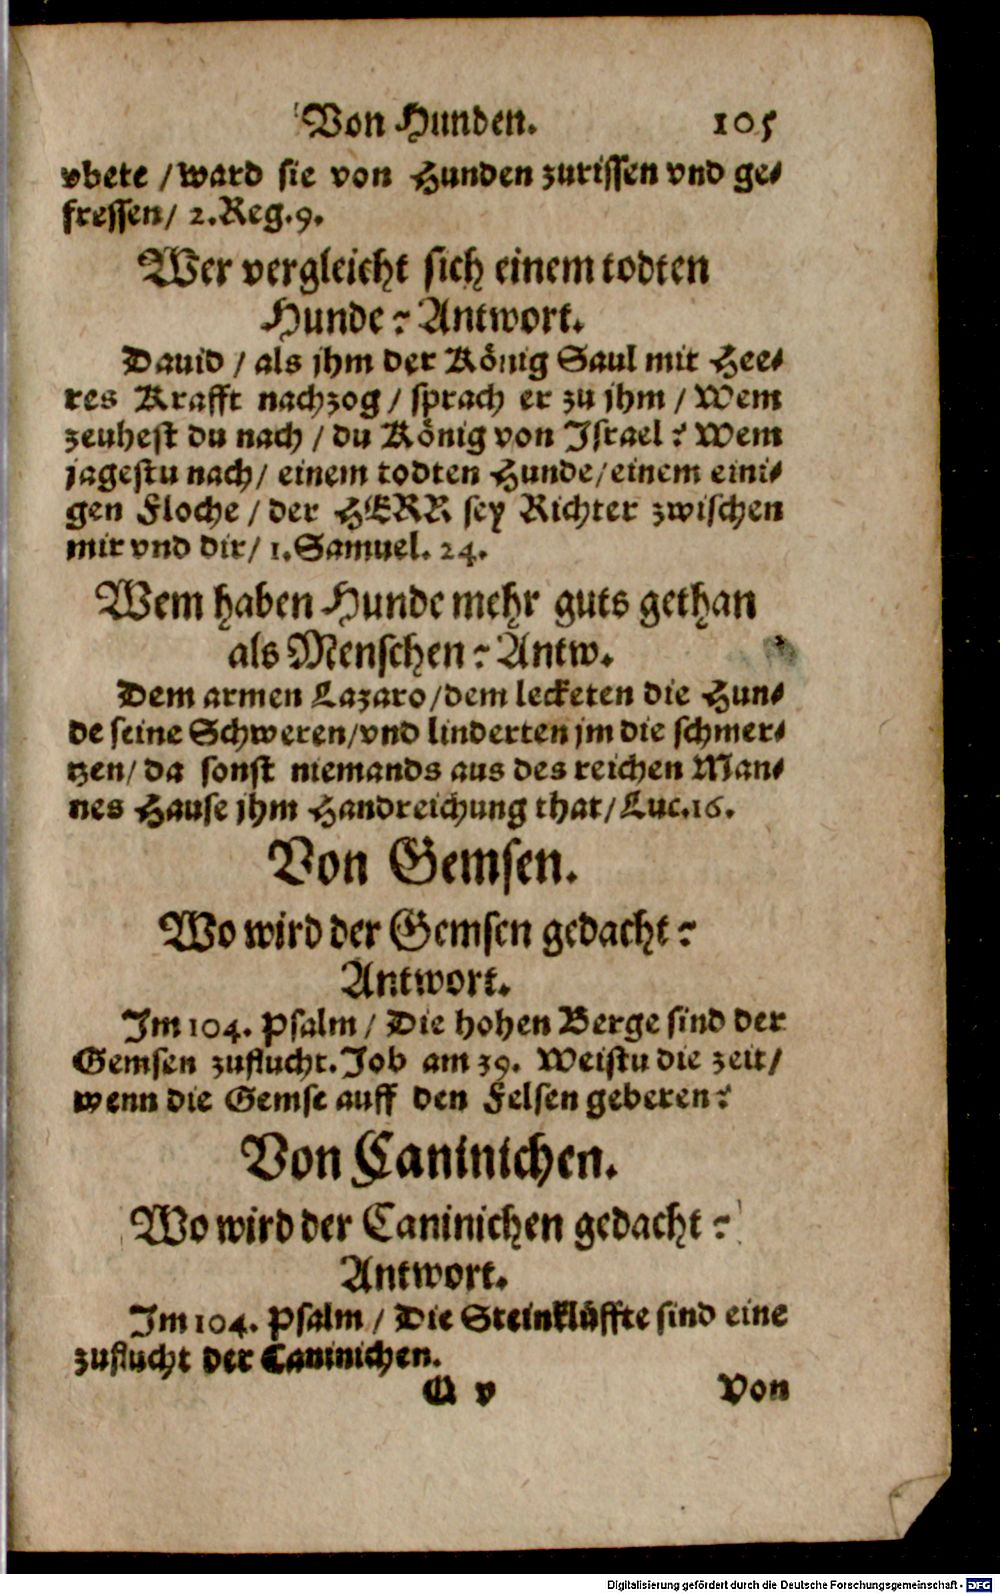 Von Hunden. 105
vbete / ward sie von Hunden zurissen vnd ge⸗
fressen / 2. Reg. 9.
Wer vergleicht sich einem todten
Hunde? Antwort.
Dauid / als jhm der König Saul mit Hee⸗
res Krafft nachzog / sprach er zu jhm / Wem
zeuhest du nach / du König von Israel? Wem
jagestu nach / einem todten Hunde / einem eini⸗
gen Floche / der HERR sey Richter zwischen
mir vnd dir / 1. Samuel. 24.
Wem haben Hunde mehr guts gethan
als Menschen? Antw.
Dem armen Lazaro / dem lecketen die Hun⸗
de seine Schweren / vnd linderten jm die schmer⸗
tzen / da sonst niemands aus des reichen Man⸗
nes Hause jhm Handreichung that / Luc. 16.
Von Gemsen.
Wo wird der Gemsen gedacht?
Antwort.
Im 104. Psalm / Die hohen Berge sind der
Gemsen zuflucht. Job am 39. Weistu die zeit /
wenn die Gemse auff den Felsen geberen?
Von Caninichen.
Wo wird der Caninichen gedacht?
Antwort.
Im 104. Psalm / Die Steinklüffte sind eine
zuflucht der Caninichen.
O v Von
Digitalisierung gefördert durch die Deutsche Forschungsgemeinschaft - DFG